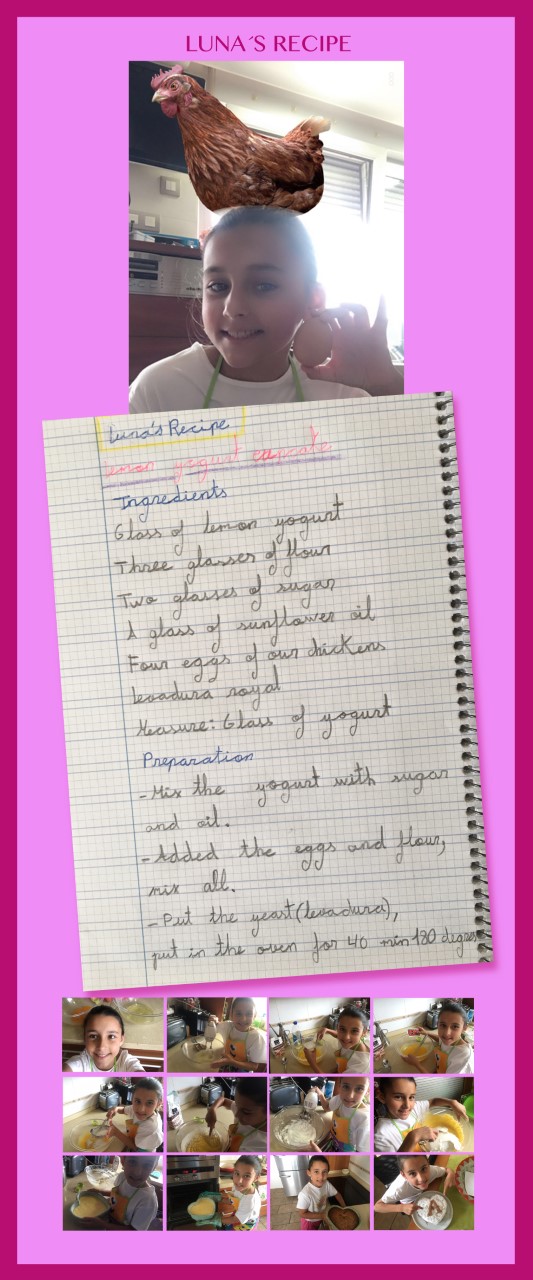 LUNA´S RECIPE
Luna's Recipe
lemon yogurt cupcake
Ingredients
Glass of lemon yogurt
Three glasses of flour
Two glasses of sugar
A glass of sunflower oil
Four eggs of our chickens
levadura royal
Measure: Glass of yogurt
Preparation
-Mix the yogurt with sugar
and oil.
-Added the eggs and flour,
mix all.
-Put the yeast(levadura),
put in the oven for 40 min 180 degrees